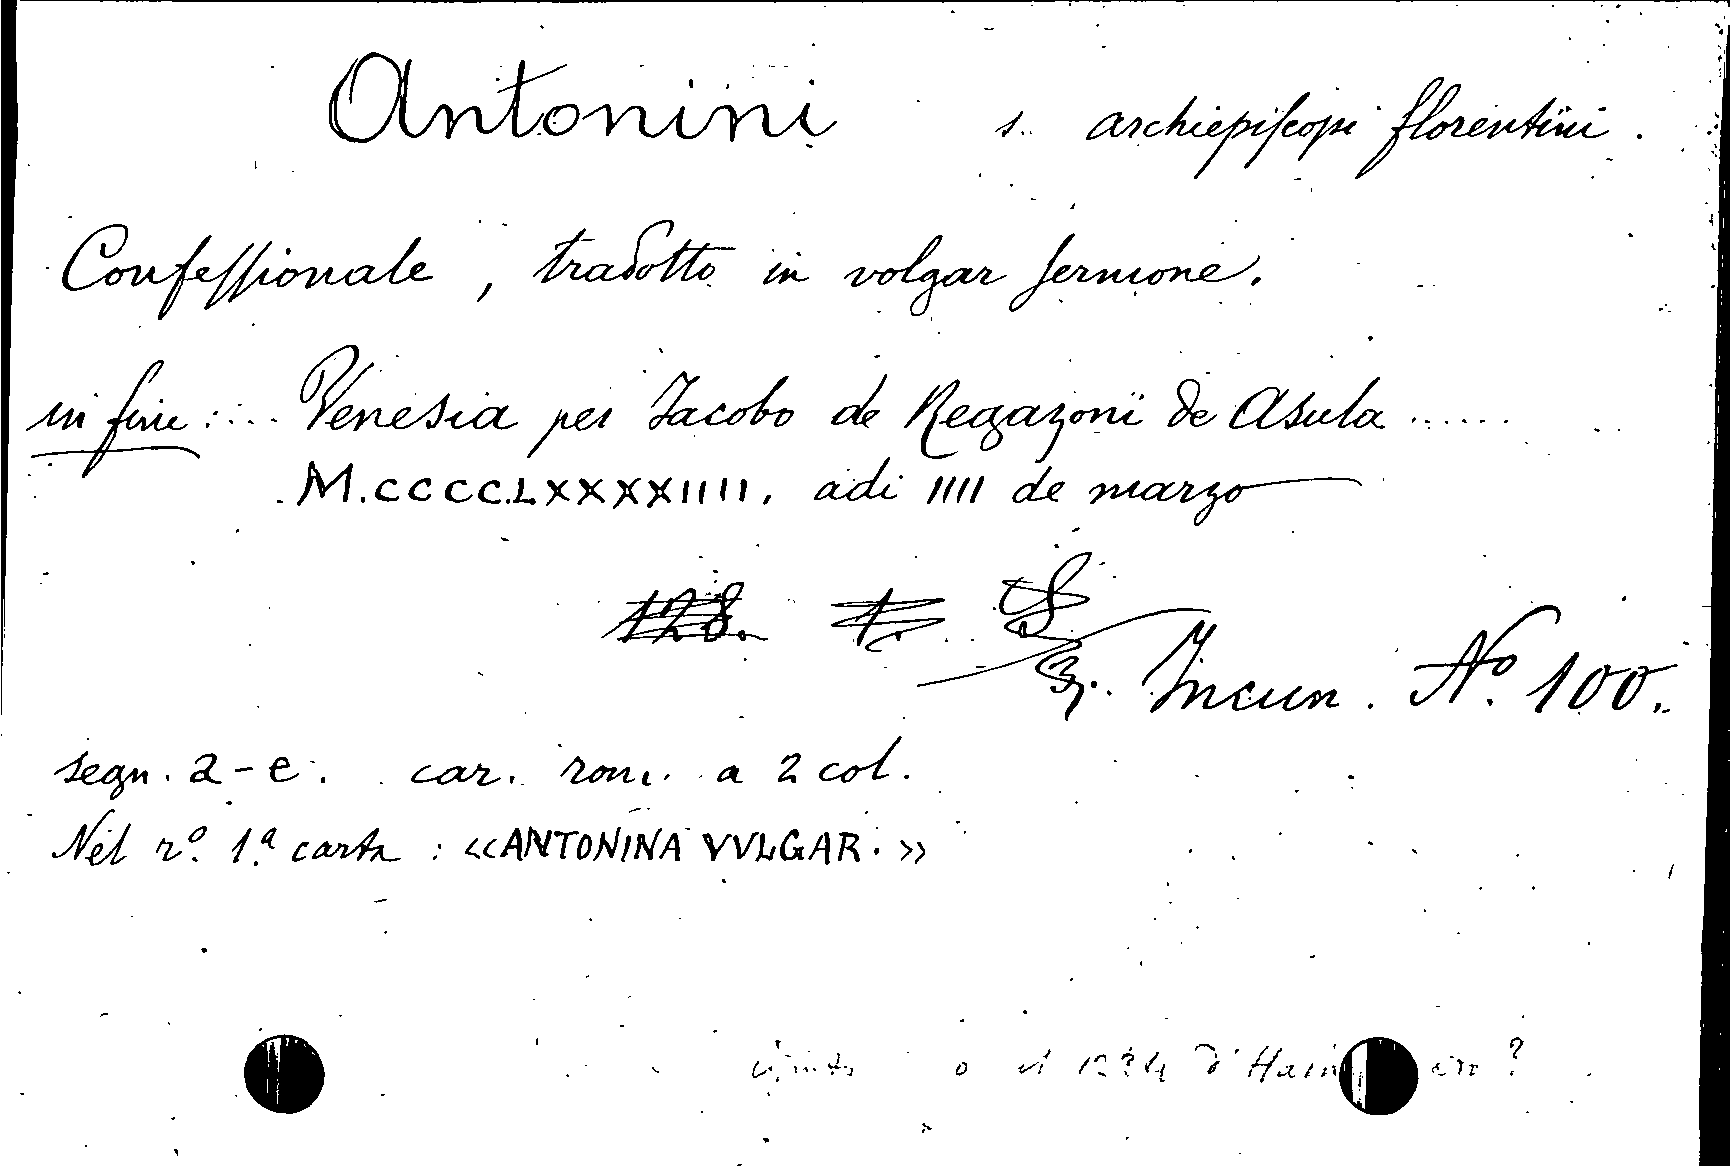 Antonini s. archiepiscopi florentini.
Confessionale, tradotto in volgar sermone.
in fine: ... Venesia per Jacobo de Regazoni de Asula ......
M.CCCC.LXXXXIIII. adi IIII de marzo
128. 1.
Incun. Nº. 100.
segn. a-e. car. rom. a 2 col.
Nel rº. 1.ª carta : «ANTONINA VVLGAR.»